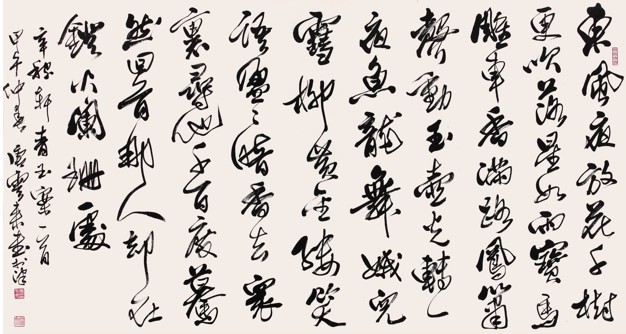 東風夜放花千樹
更吹落星如雨寶馬
雕車香滿路鳳簫
聲動玉壺光轉一
夜魚龍舞蛾兒
雪柳黃金縷笑
語盈〻暗香去衆
裏尋他千百度驀
然回首那人却在
燈火闌珊處
辛稼軒青玉案一首
甲午仲春雲書